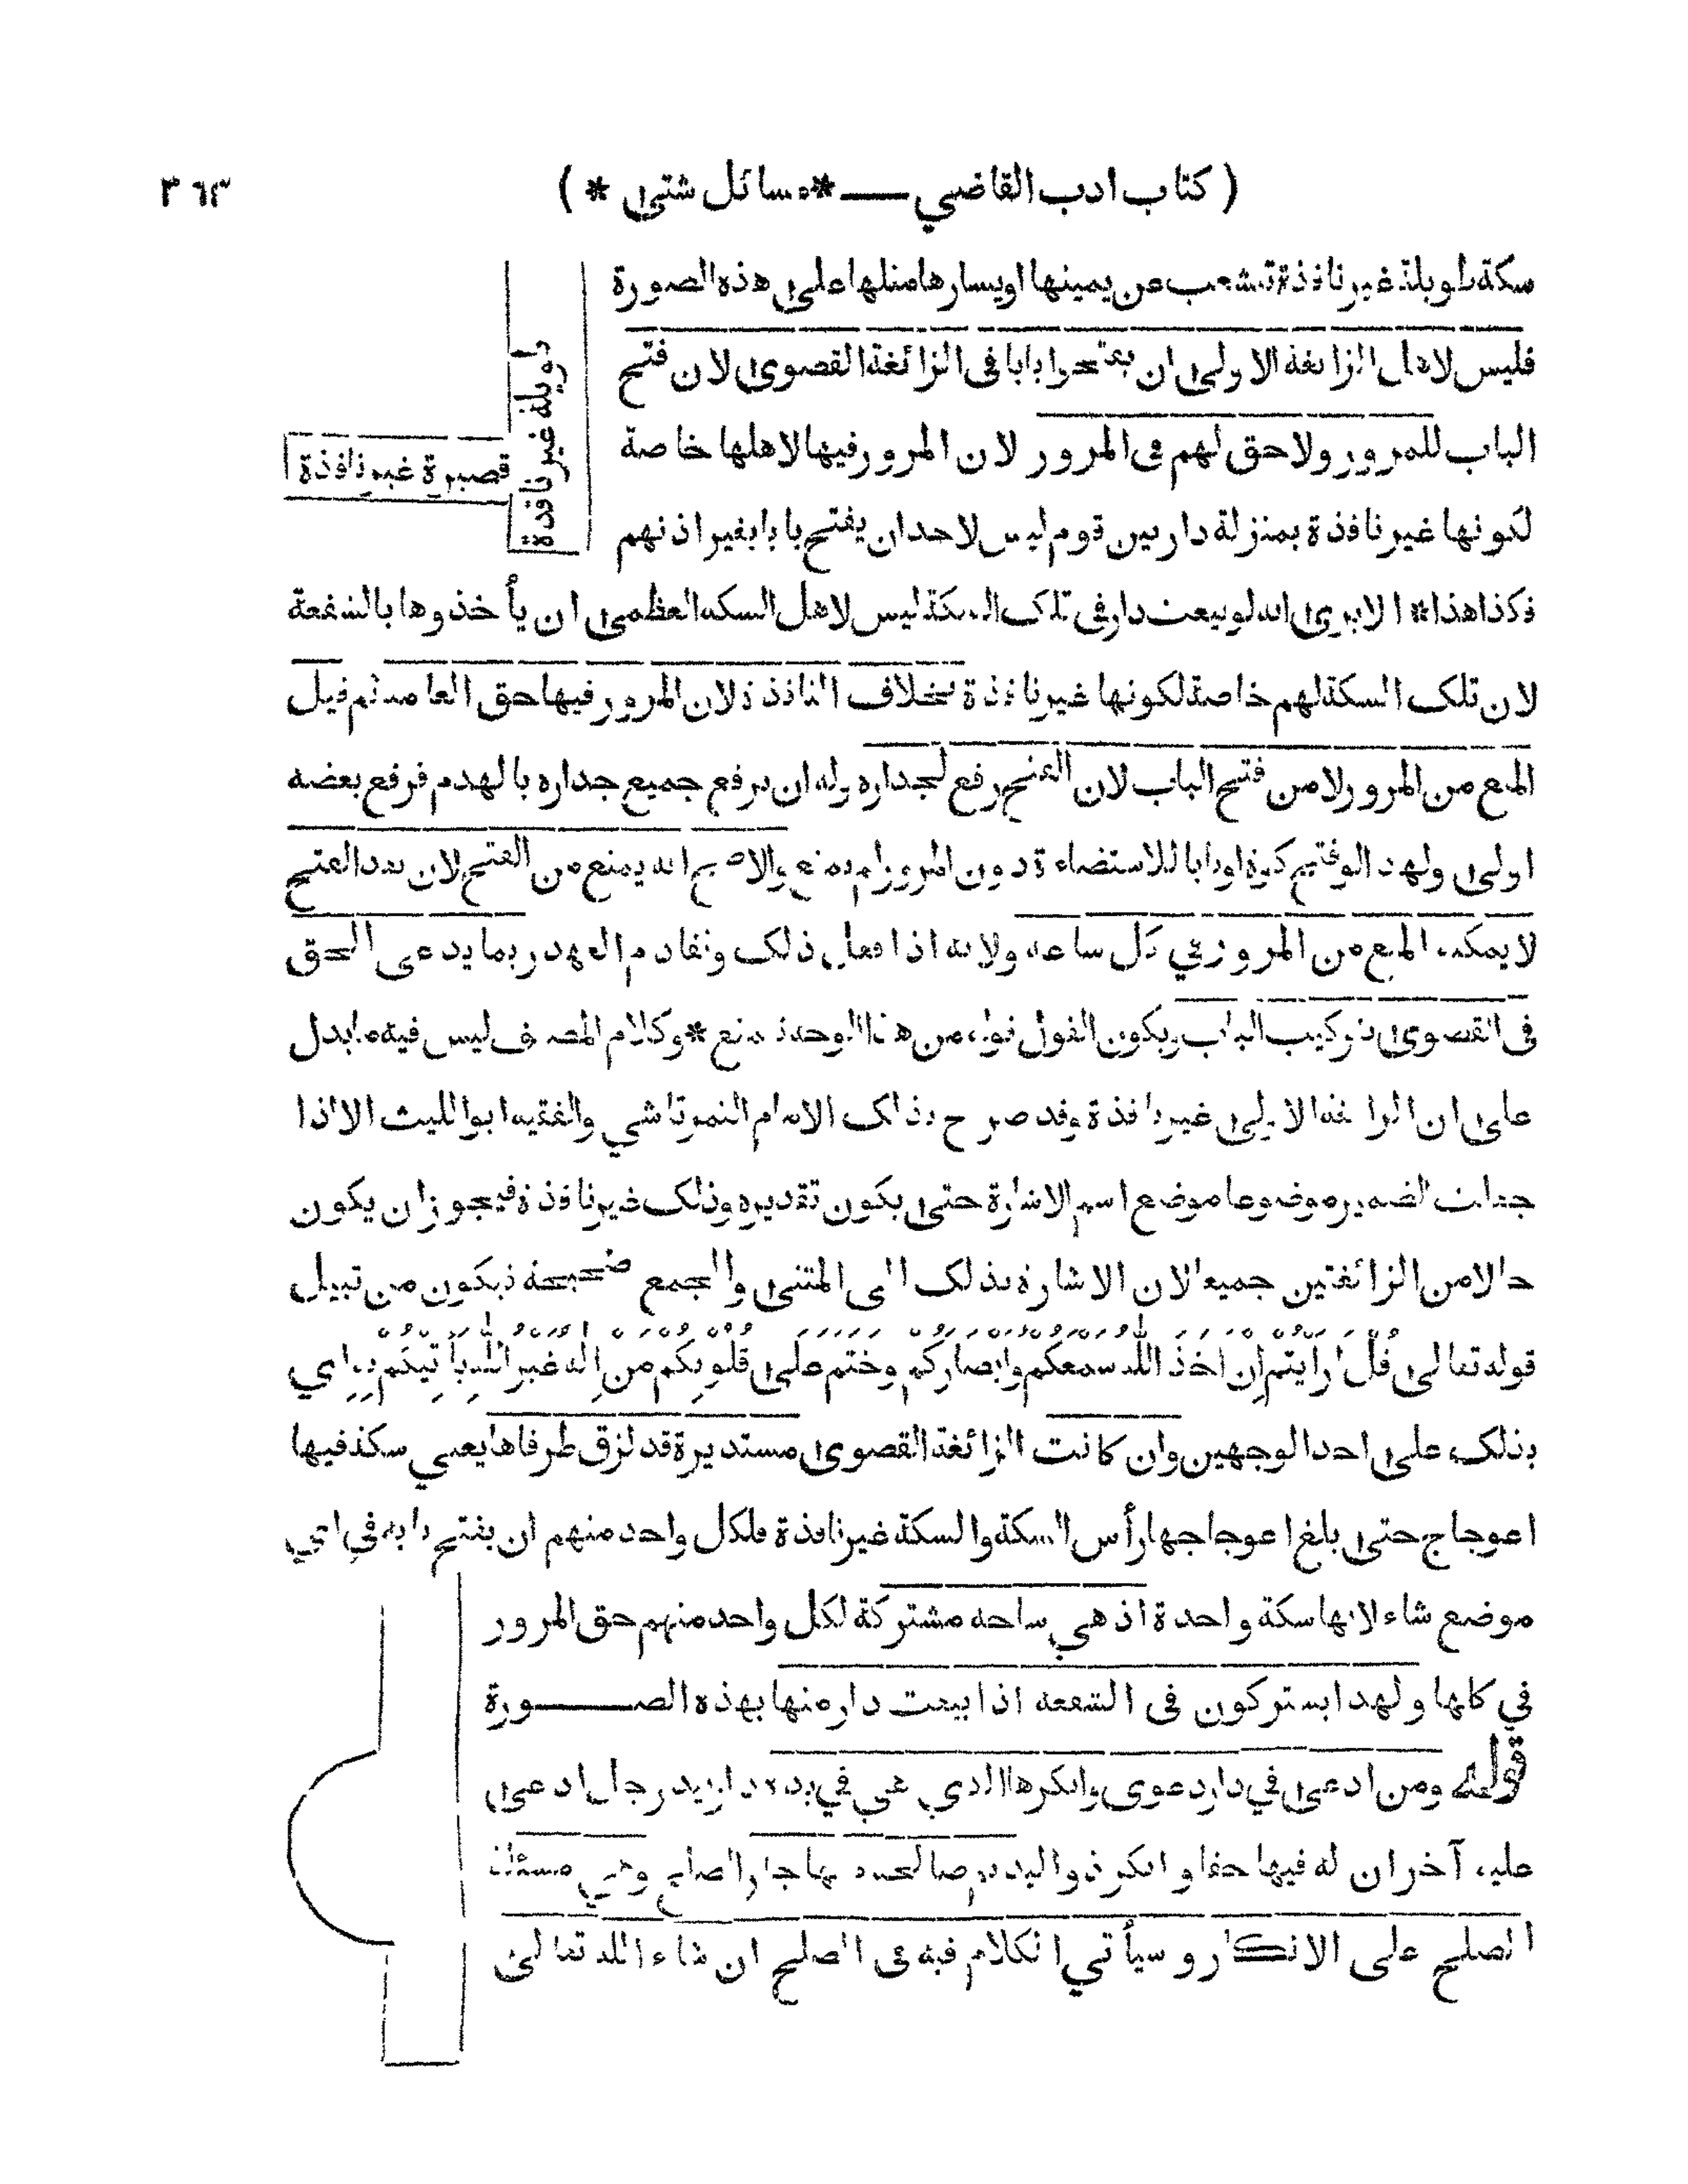 ( كتاب ادب القاضي — * مسائل شتى * )
٣٦٣
سكة طويلة غير نافذة تتشعب عن يمينها او يسارها مثلها على هذه الصورة
فليس لاهل الزائغة الاولى ان يفتحوا بابا في الزائغة القصوى لان فتح
الباب للمرور ولا حق لهم في المرور لان المرور فيها لاهلها خاصة
لكونها غير نافذة بمنزلة دار بين قوم ليس لاحد ان يفتح بابا بغير اذنهم
طويلة غير نافذة
قصيرة غير نافذة
فكذا هذا * الا يرى انه لو بيعت دار في تلك السكة ليس لاهل السكة العظمى ان يأخذوها بالشفعة
لان تلك السكة لهم خاصة لكونها غير نافذة بخلاف النافذة لان المرور فيها حق العامة ثم قيل
المنع من المرور لا من فتح الباب لان الفتح رفع لجداره وله ان يرفع جميع جداره بالهدم فرفع بعضه
اولى ولهذا لو فتح كوة او بابا للاستضاءة دون المرور لم يمنع والاصح انه يمنع من الفتح لان بعد الفتح
لا يمكنه المنع من المرور في كل ساعة ولانه اذا فعل ذلك وتقادم العهد ربما يدعى الحق
في القصوى بتركيب الباب ويكون القول قوله من هذا الوجه فيمنع * وكلام المصنف ليس فيه ما يدل
على ان الزائغة الاولى غير نافذة وقد صرح بذلك الامام التمرتاشي والفقيه ابو الليث الا اذا
جعلت الضمير موضوعا موضع اسم الاشارة حتى يكون تقديره وذلك غير نافذة فيجوز ان يكون
حالا من الزائغتين جميعا لان الاشارة بذلك الى المثنى والجمع صحيحة فيكون من قبيل
قوله تعالى قُلْ اَرَاَيْتُمْ اِنْ اَخَذَ اللهُ سَمْعَكُمْ وَاَبْصَارَكُمْ وَخَتَمَ عَلَى قُلُوبِكُمْ مَنْ اِلَهٌ غَيْرُ اللهِ يَأْتِيكُمْ بِهِ اي
بذلك على احد الوجهين وان كانت الزائغة القصوى مستديرة قد لزق طرفاها يعني سكة فيها
اعوجاج حتى بلغ اعوجاجها رأس السكة والسكة غير نافذة فلكل واحد منهم ان يفتح بابه في اي
موضع شاء لانها سكة واحدة اذ هي ساحة مشتركة لكل واحد منهم حق المرور
في كلها ولهذا يشتركون في الشفعة اذا بيعت دار منها بهذه الصـــورة
قوله ومن ادعى في دار دعوى وانكرها الذي هي في يده دار بيد رجل ادعى
عليه آخر ان له فيها حقا وانكر ذو اليد ثم صالحه منها جاز الصلح وهي مسئلة
الصلح على الانكار وسيأتي الكلام فيه في الصلح ان شاء الله تعالى